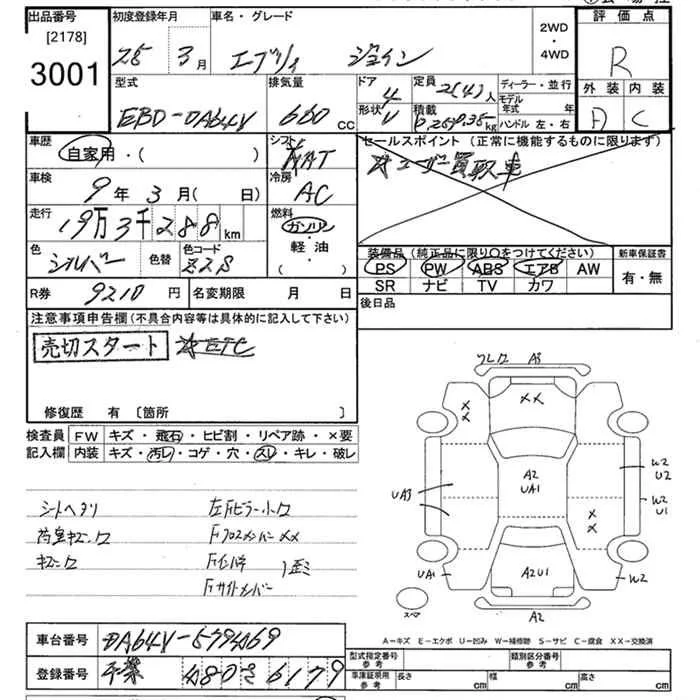 出品番号 初度登録年月 車名・グレード 2WD・4WD 評価点
[2178]
3001 25年 3月 エブリィ ジョイン R
型式 排気量 ドア 定員 ディーラー・並行 外装 内装
EBD-DA64V 660cc 4 2(4)人 モデル年式 年 D C
形状 V 積載 kg ハンドル 左・右
車歴 シフト セールスポイント(正常に機能するものに限ります)
自家用・( ) AT ユーザー買取車
車検 冷房
9年 3月( 日) AC
走行 燃料
19万3千288km ガソリン
軽・油
( )
色 色替 色コード 装備品(純正品に限り○をつけてください) 新車保証書
シルバー Z2S PS PW ABS エアB AW 有・無
SR ナビ TV カワ
R券 9210円 名変期限 月 日 後日品
注意事項申告欄(不具合内容等は具体的に記入して下さい)
売切スタート ETC
修復歴 有 [箇所 ]
検査員記入欄 FW キズ・飛石・ヒビ割・リペア跡・×要
内装 キズ・汚レ・コゲ・穴・スレ・キレ・破レ
シートヘタリ 左Fピラー小ワ
荷室キズ、ワ Fクロスメンバー××
キズ、ワ
Fサイドメンバー
ワレワ A3
××
×
×
A2
UA1
UA3
W2
U2
W2
U1
×
×
UA1 A2U1 W2
スペア A2
A−キズ E−エクボ U−凹み W−補修跡 S−サビ C−腐食 ××−交換済
車台番号 型式指定番号 参考 類別区分番号 参考
登録番号 千葉 480 さ 6179 車庫証明用 参考 長さ cm 幅 cm 高さ cm